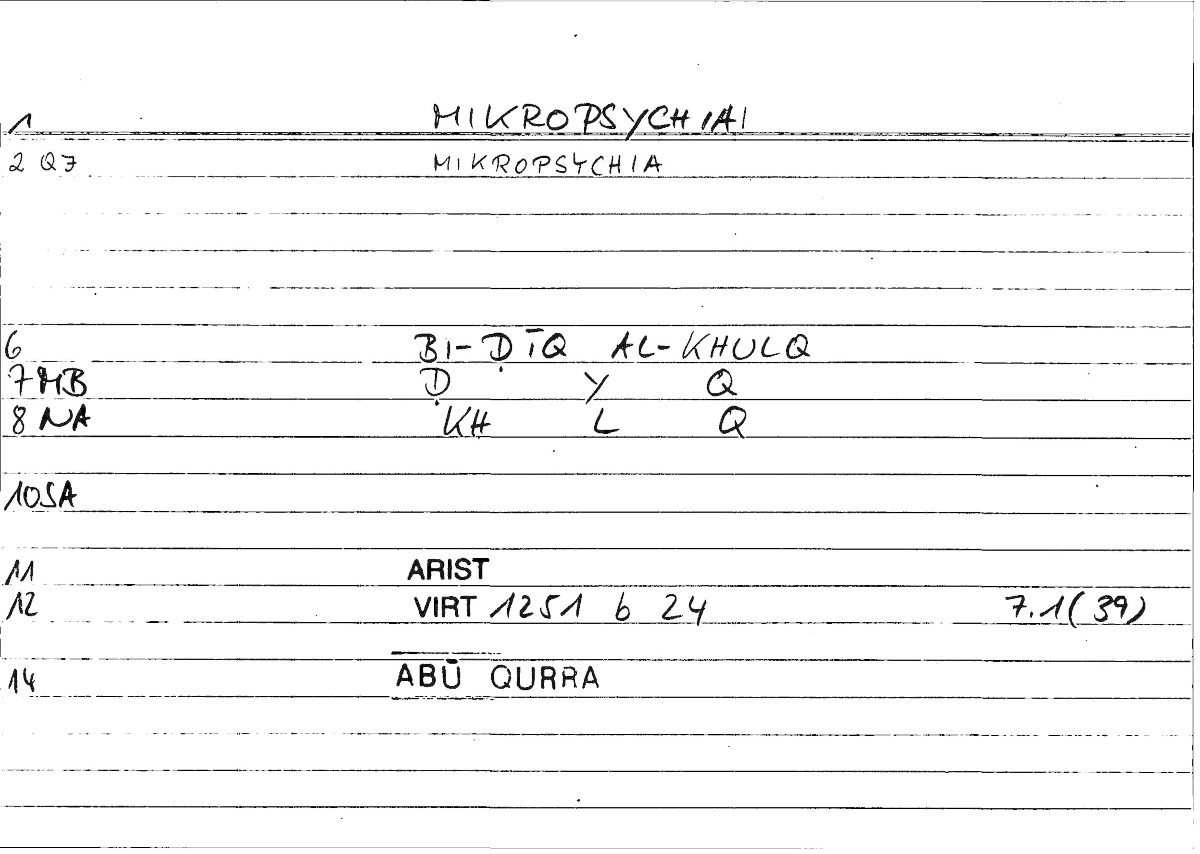 1 MIKROPSYCHIAI
2 Q7 MIKROPSYCHIA
6 BI-ḌĪQ AL-KHULQ
7 MB Ḍ Y Q
8 NA KH L Q
10 SA
11 ARIST
12 VIRT 1251 b 24 7.1(39)
14 ABŪ QURRA